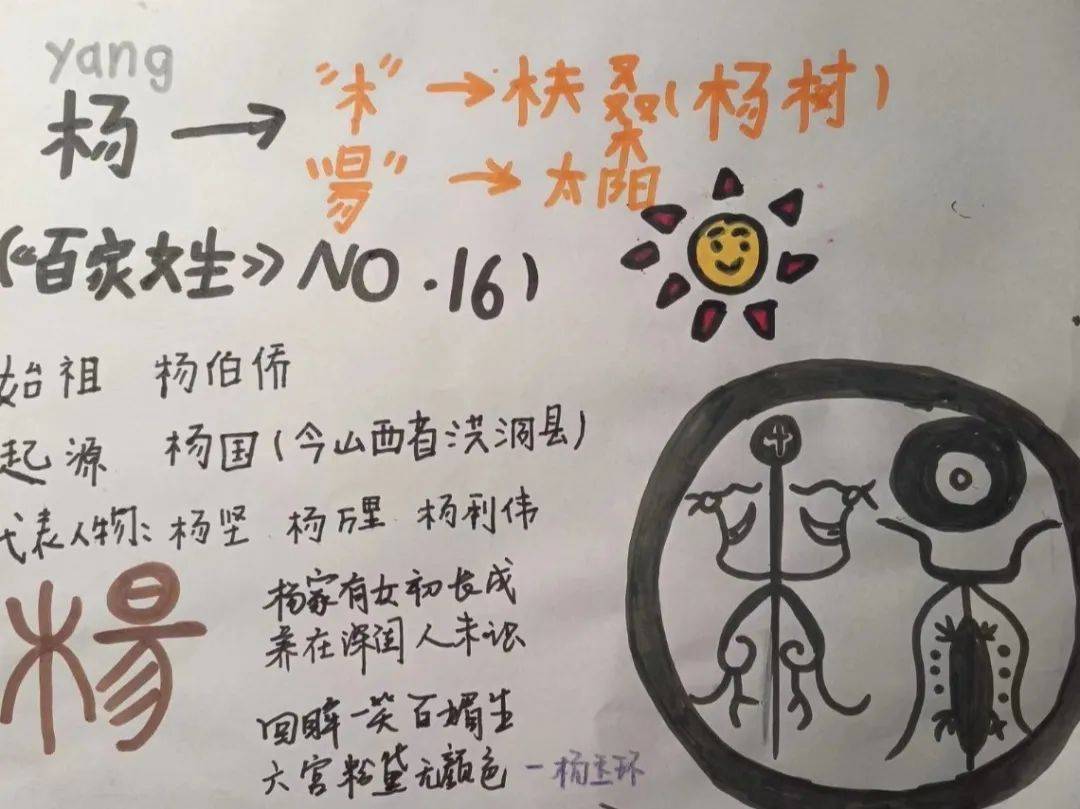 yang
杨 → "木" → 扶桑(杨树)
"昜" → 太阳
(《百家姓》NO.16)
始祖 杨伯侨
起源 杨国(今山西省洪洞县)
代表人物: 杨坚 杨万里 杨利伟
楊
杨家有女初长成
养在深闺人未识
回眸一笑百媚生
六宫粉黛无颜色 - 杨玉环